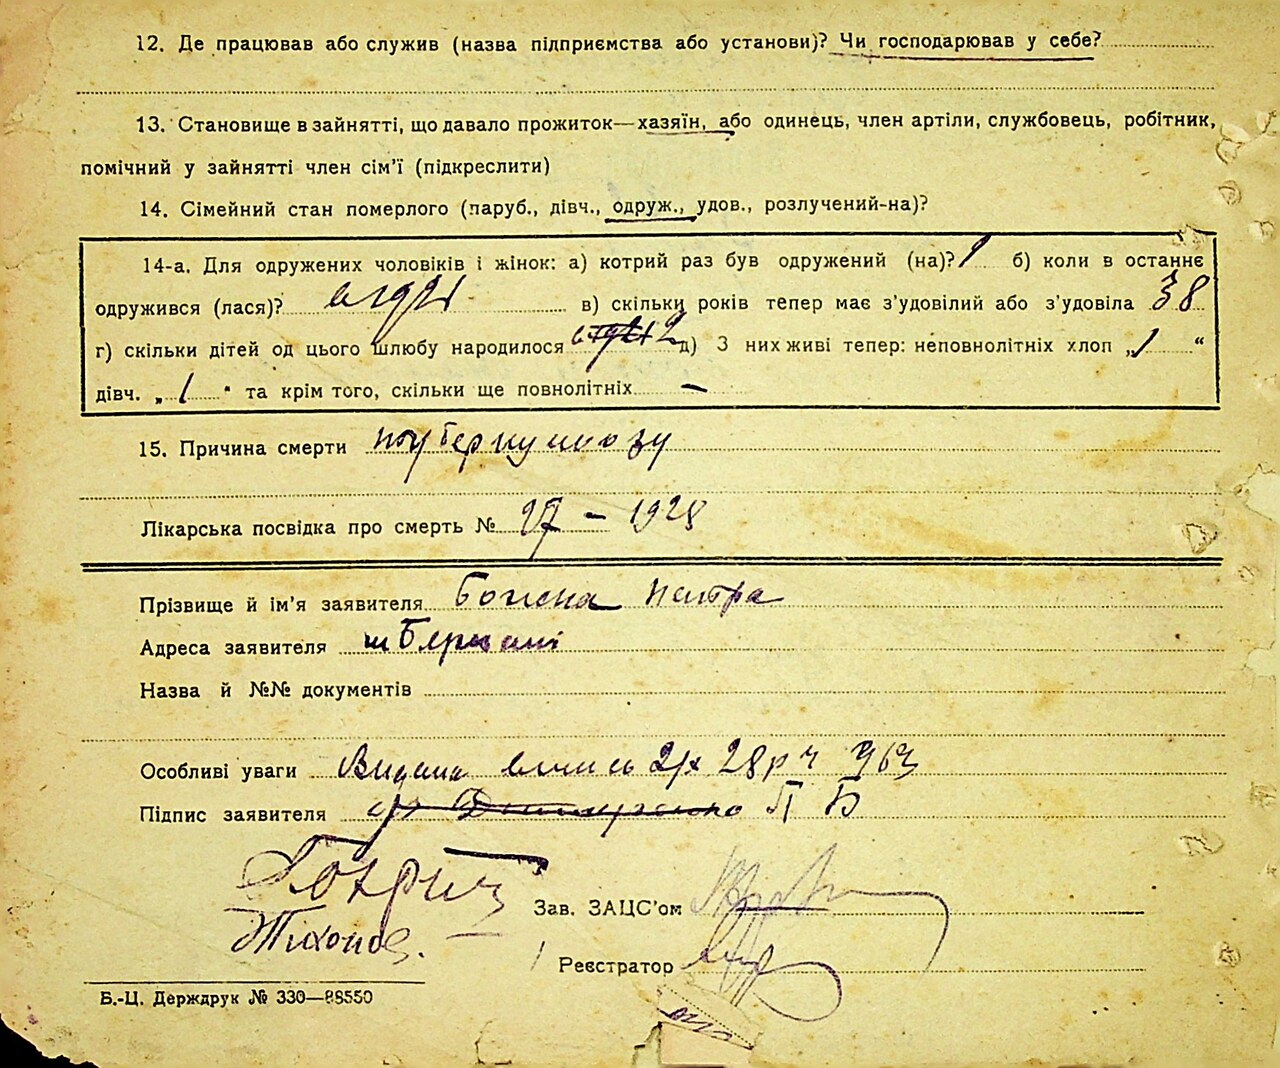 12. Де працював або служив (назва підприємства або установи)? Чи господарював у себе?
13. Становище в зайнятті, що давало прожиток—хазяїн, або одинець, член артіли, службовець, робітник,
помічний у зайнятті член сім'ї (підкреслити)
14. Сімейний стан померлого (паруб., дівч., одруж., удов., розлучений-на)?
14-а. Для одружених чоловіків і жінок: а) котрий раз був одружений (на)? 1 б) коли в останнє
одружився (лася)? в) скільки років тепер має з'удовілий або з'удовіла 38
г) скільки дітей од цього шлюбу народилося 2 д) З них живі тепер: неповнолітніх хлоп „1“
дівч. „1“ та крім того, скільки ще повнолітніх —
15. Причина смерти туберкульозу
Лікарська посвідка про смерть № 27 – 1928
Прізвище й ім'я заявителя Петра
Адреса заявителя
Назва й №№ документів
Особливі уваги Видана 28 р ч
Підпис заявителя П Б
Зав. ЗАЦС'ом
Тихонов.
Реєстратор
Б.-Ц. Держдрук № 330—88550